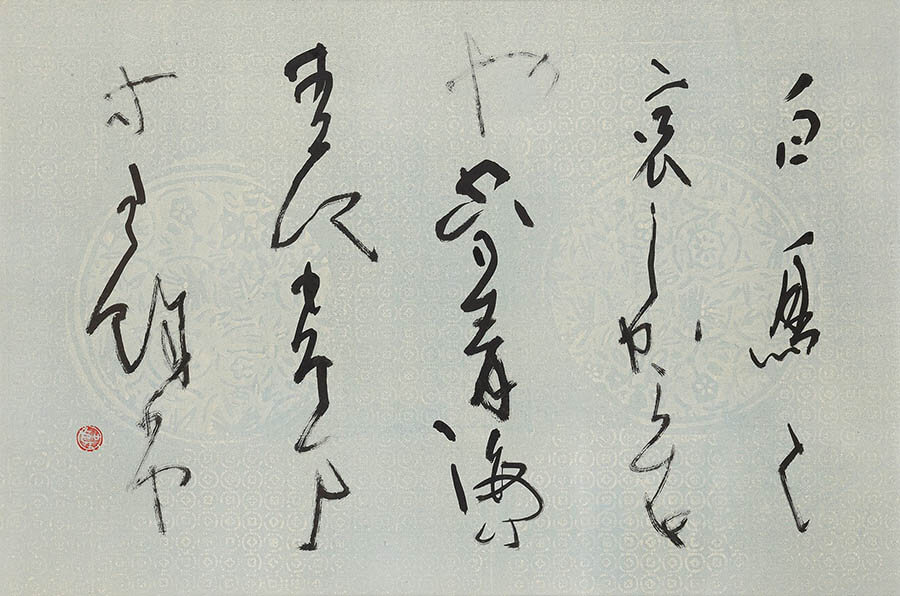 白鳥は
哀しからす
や空の青海の
あをにも染ま
すたゝよふ